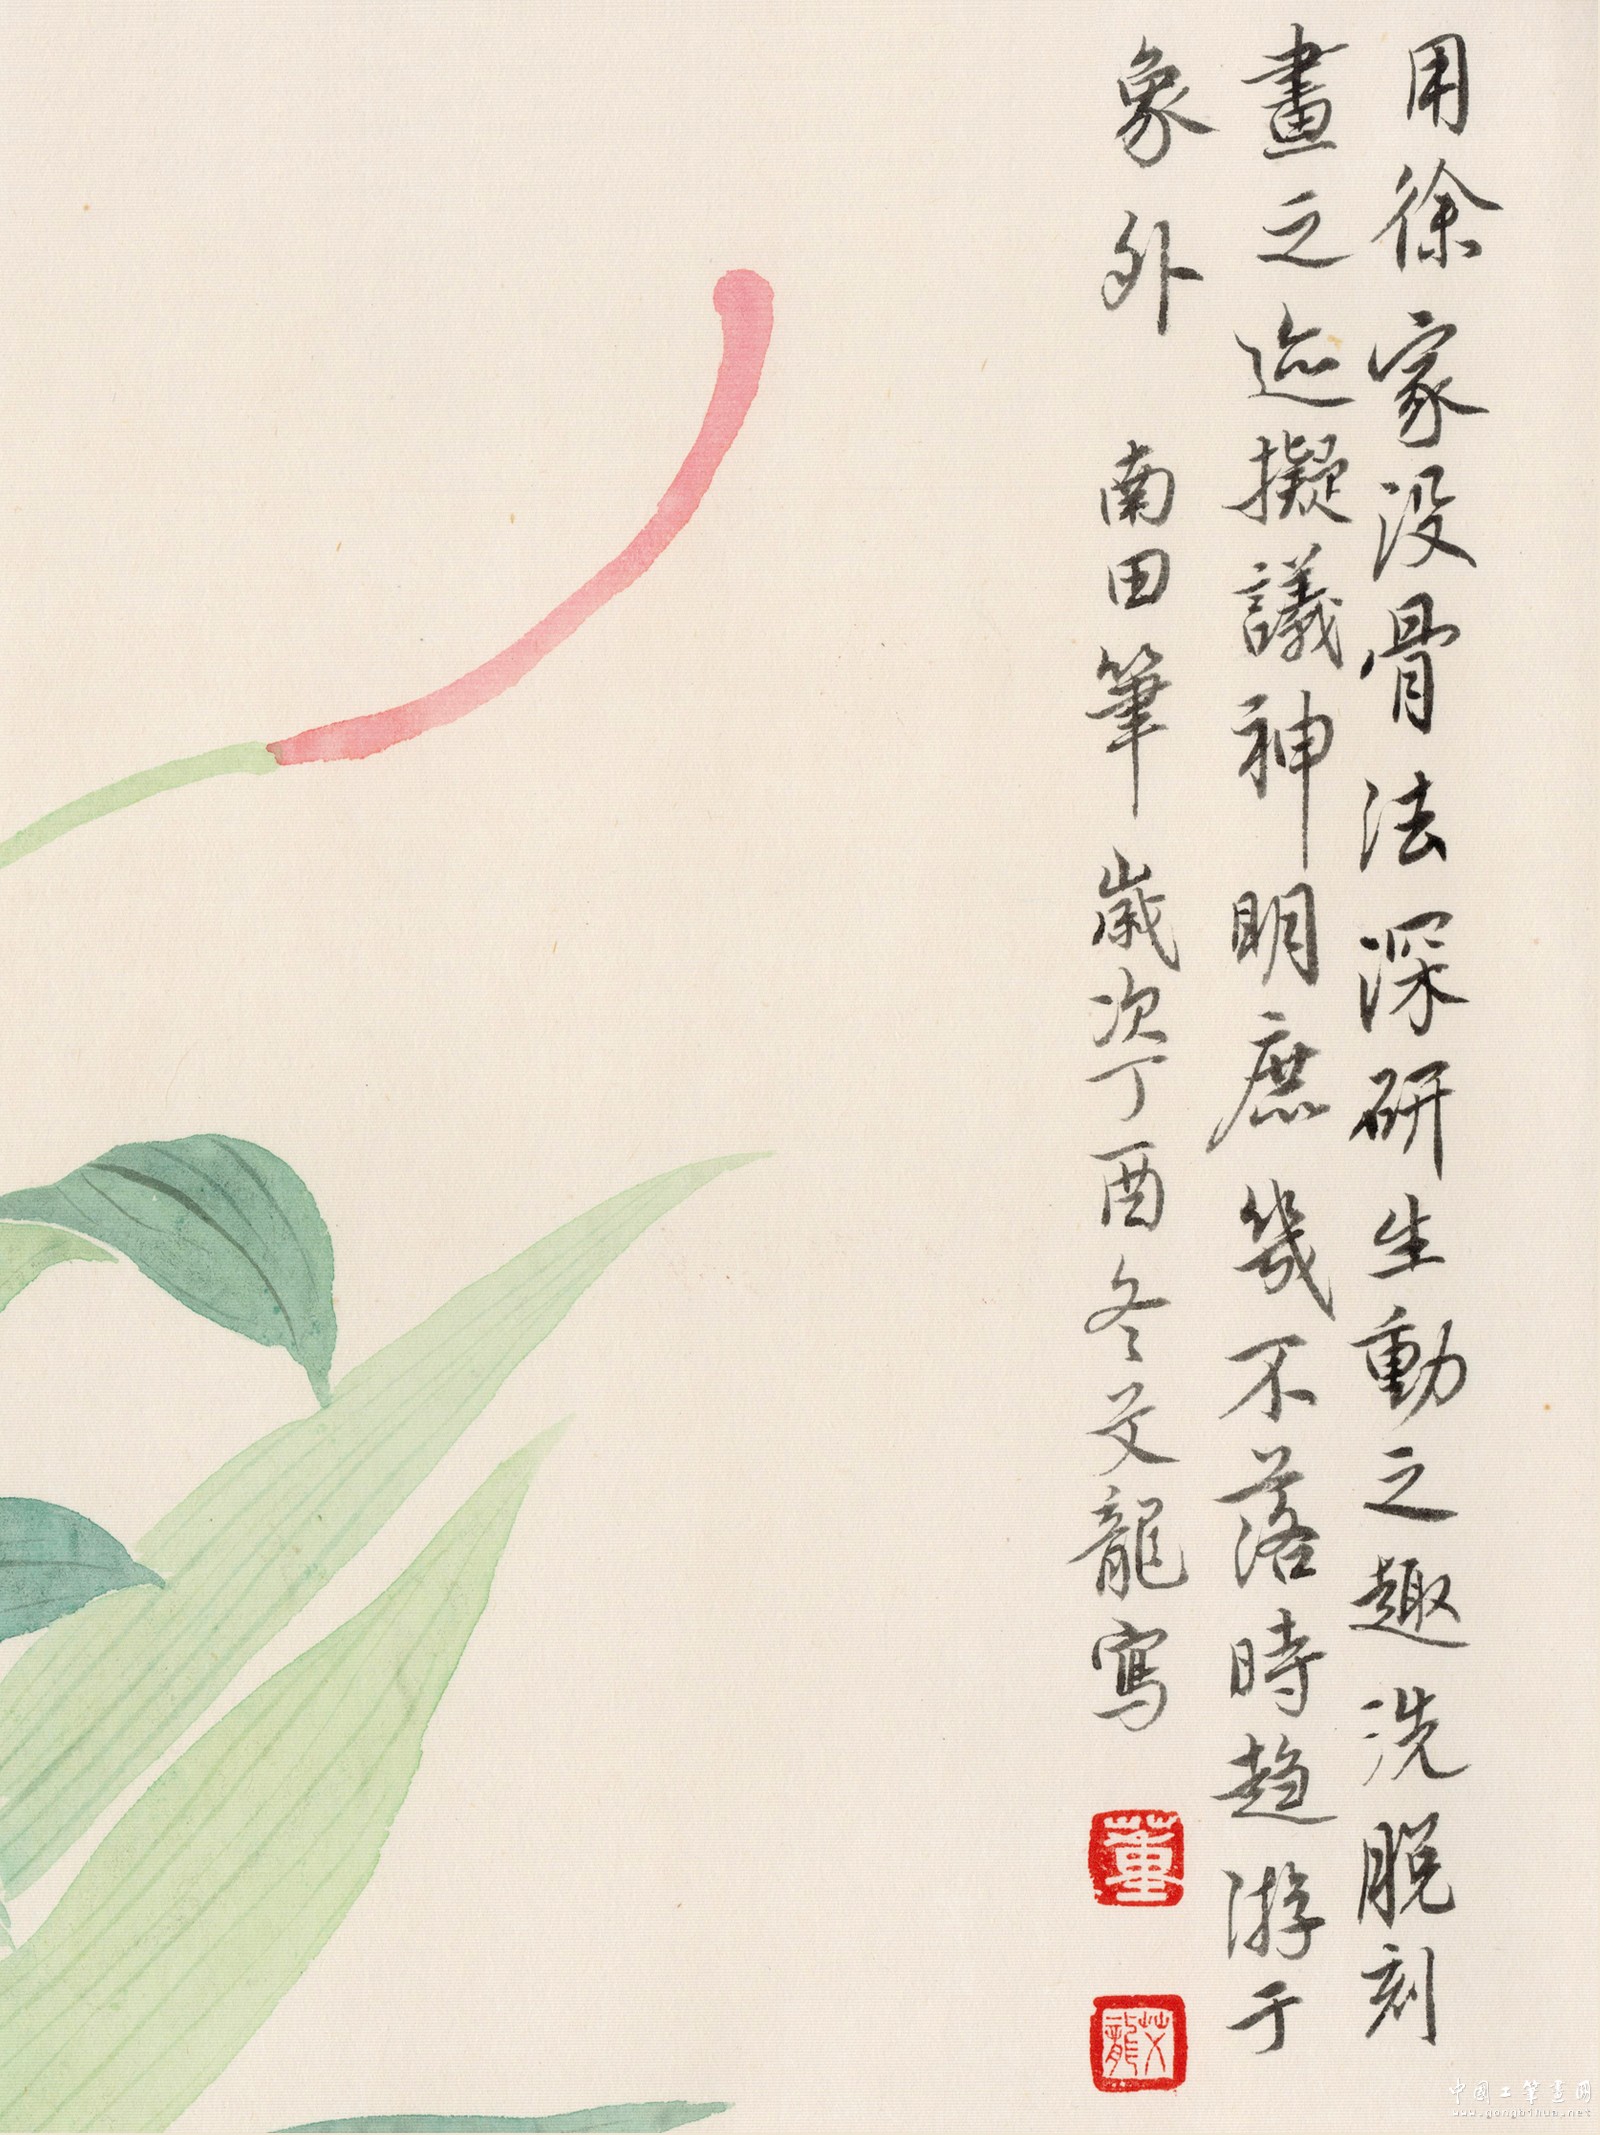 用徐家没骨法深研生動之趣洗脱刻
畫之迹擬議神明庶幾不落時趨游于
象外 南田筆 歲次丁酉冬艾龍寫
董
艾龍
中国工筆畫网
www.gongbihua.net